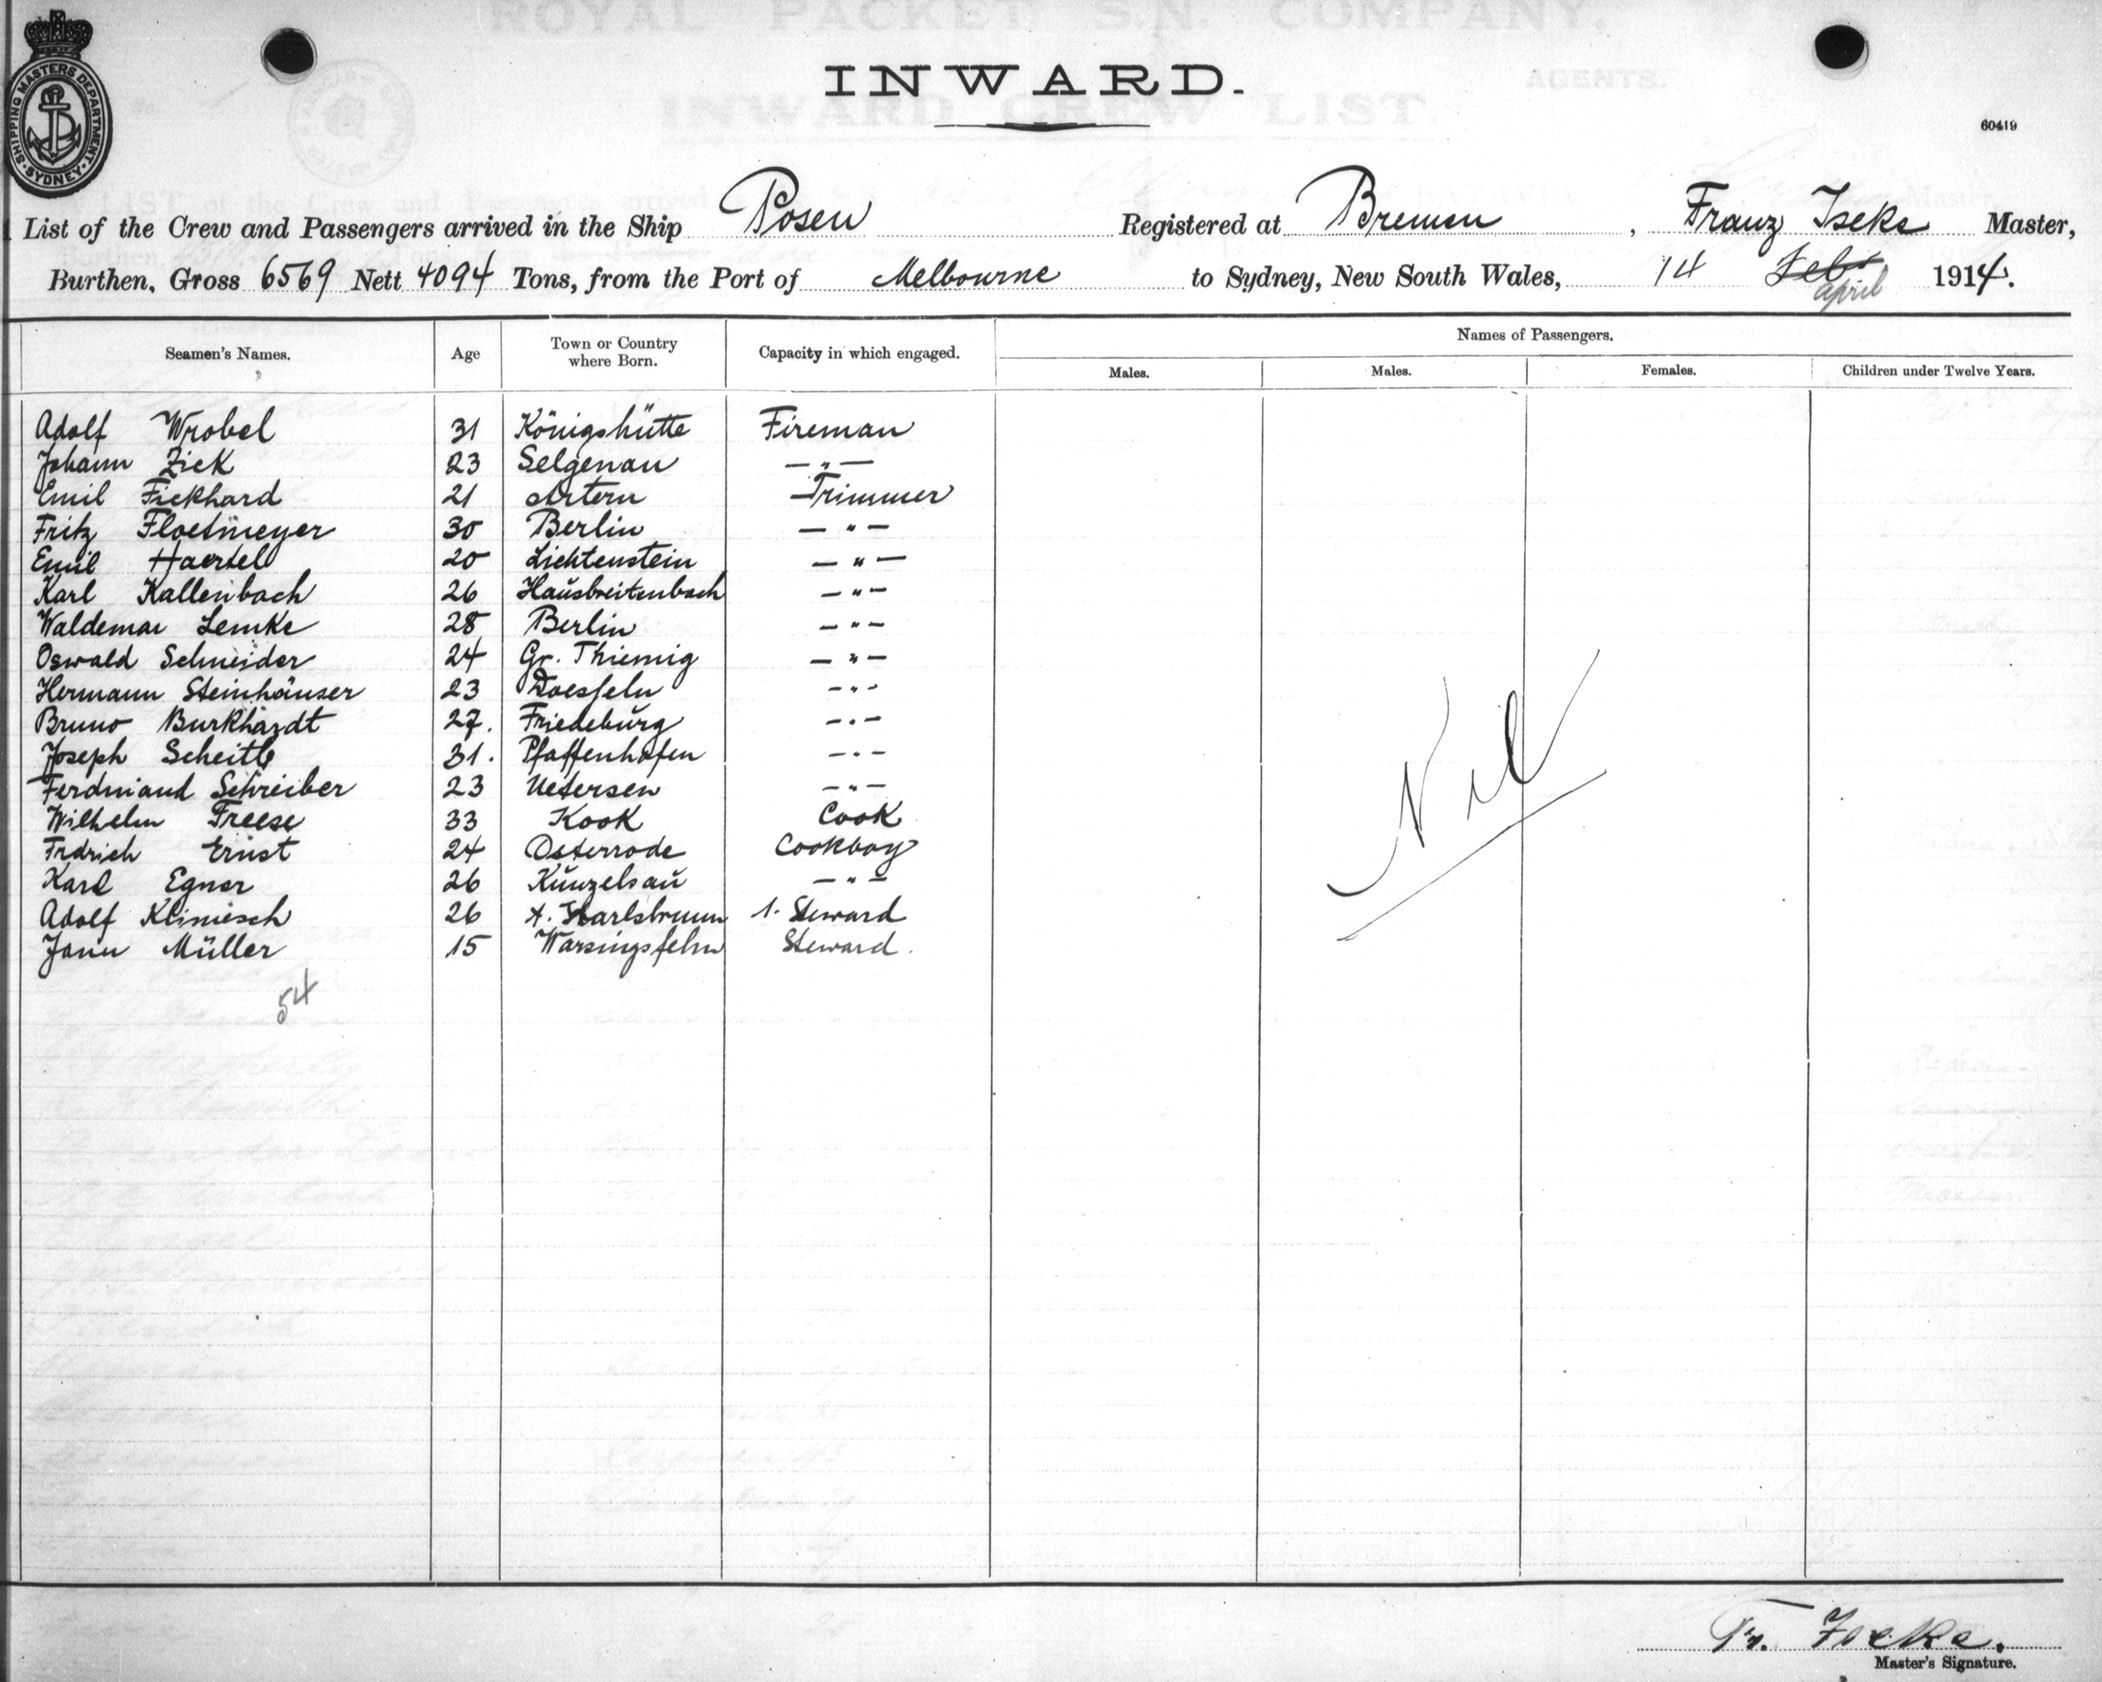 INWARD.
SHIPPING MASTERS DEPARTMENT
SYDNEY
60419
List of the Crew and Passengers arrived in the Ship Posen Registered at Bremen, Franz Iseke Master,
Burthen, Gross 6569 Nett 4094 Tons, from the Port of Melbourne to Sydney, New South Wales, 14 Feb. april 1914.
Seamen's Names. Age Town or Country where Born. Capacity in which engaged. Names of Passengers.
Males. Males. Females. Children under Twelve Years.
Adolf Wrobel 31 Königshütte Fireman
Johann Zick 23 Selgenau — " —
Emil Fickhard 21 Artern Trimmer
Fritz Floetmeyer 30 Berlin — " —
Emil Haertel 20 Lichtenstein — " —
Karl Kallenbach 26 Hausbreitenbach — " —
Waldemar Lemke 28 Berlin — " —
Oswald Schneider 24 Gr. Thiemig — " —
Hermann Steinhäuser 23 — " —
Bruno Burkhardt 27. Friedeburg — " —
Joseph Scheitle 31. Pfaffenhofen — " —
Ferdinand Schreiber 23 Uetersen — " —
Wilhelm Freese 33 Kook Cook
Frdrich Ernst 24 Osterrode Cookboy
Karl Egner 26 Künzelsau — " —
Adolf Klimesch 26 Karlsbrunn 1. Steward
Jann Müller 15 Warsingsfehn Steward.
54
Nil
Fr. Iseke.
Master's Signature.